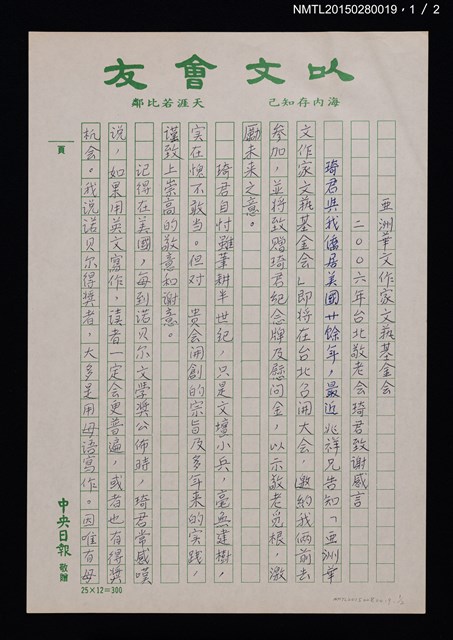 NMTL20150280019，1／2
以文會友
海內存知己　天涯若比鄰
亞洲華文作家文藝基金会
二００六年台北敬老会琦君致谢感言
琦君與我僑居美國廿餘年，最近兆祥兄告知「亞洲華
文作家文藝基金会」即將在台北召開大会，邀約我俩前去
參加，並將致贈琦君紀念牌及慰问金，以示敬老尋根，激
勵未来之意。
琦君自忖雖筆耕半世紀，只是文壇小兵，毫無建樹，
实在愧不敢当。但对　貴会開創的宗旨及多年来的实践，
謹致上崇高的敬意和谢意。
记得在美國，每到诺贝尔文学奖公佈時，琦君常感嘆
说，如果用英文寫作，读者一定会更普遍，或者也有得奖
机会。我说诺贝尔得奬者，大多是用母语寫作。因唯有母
頁
中央日報 敬贈
25×12=300